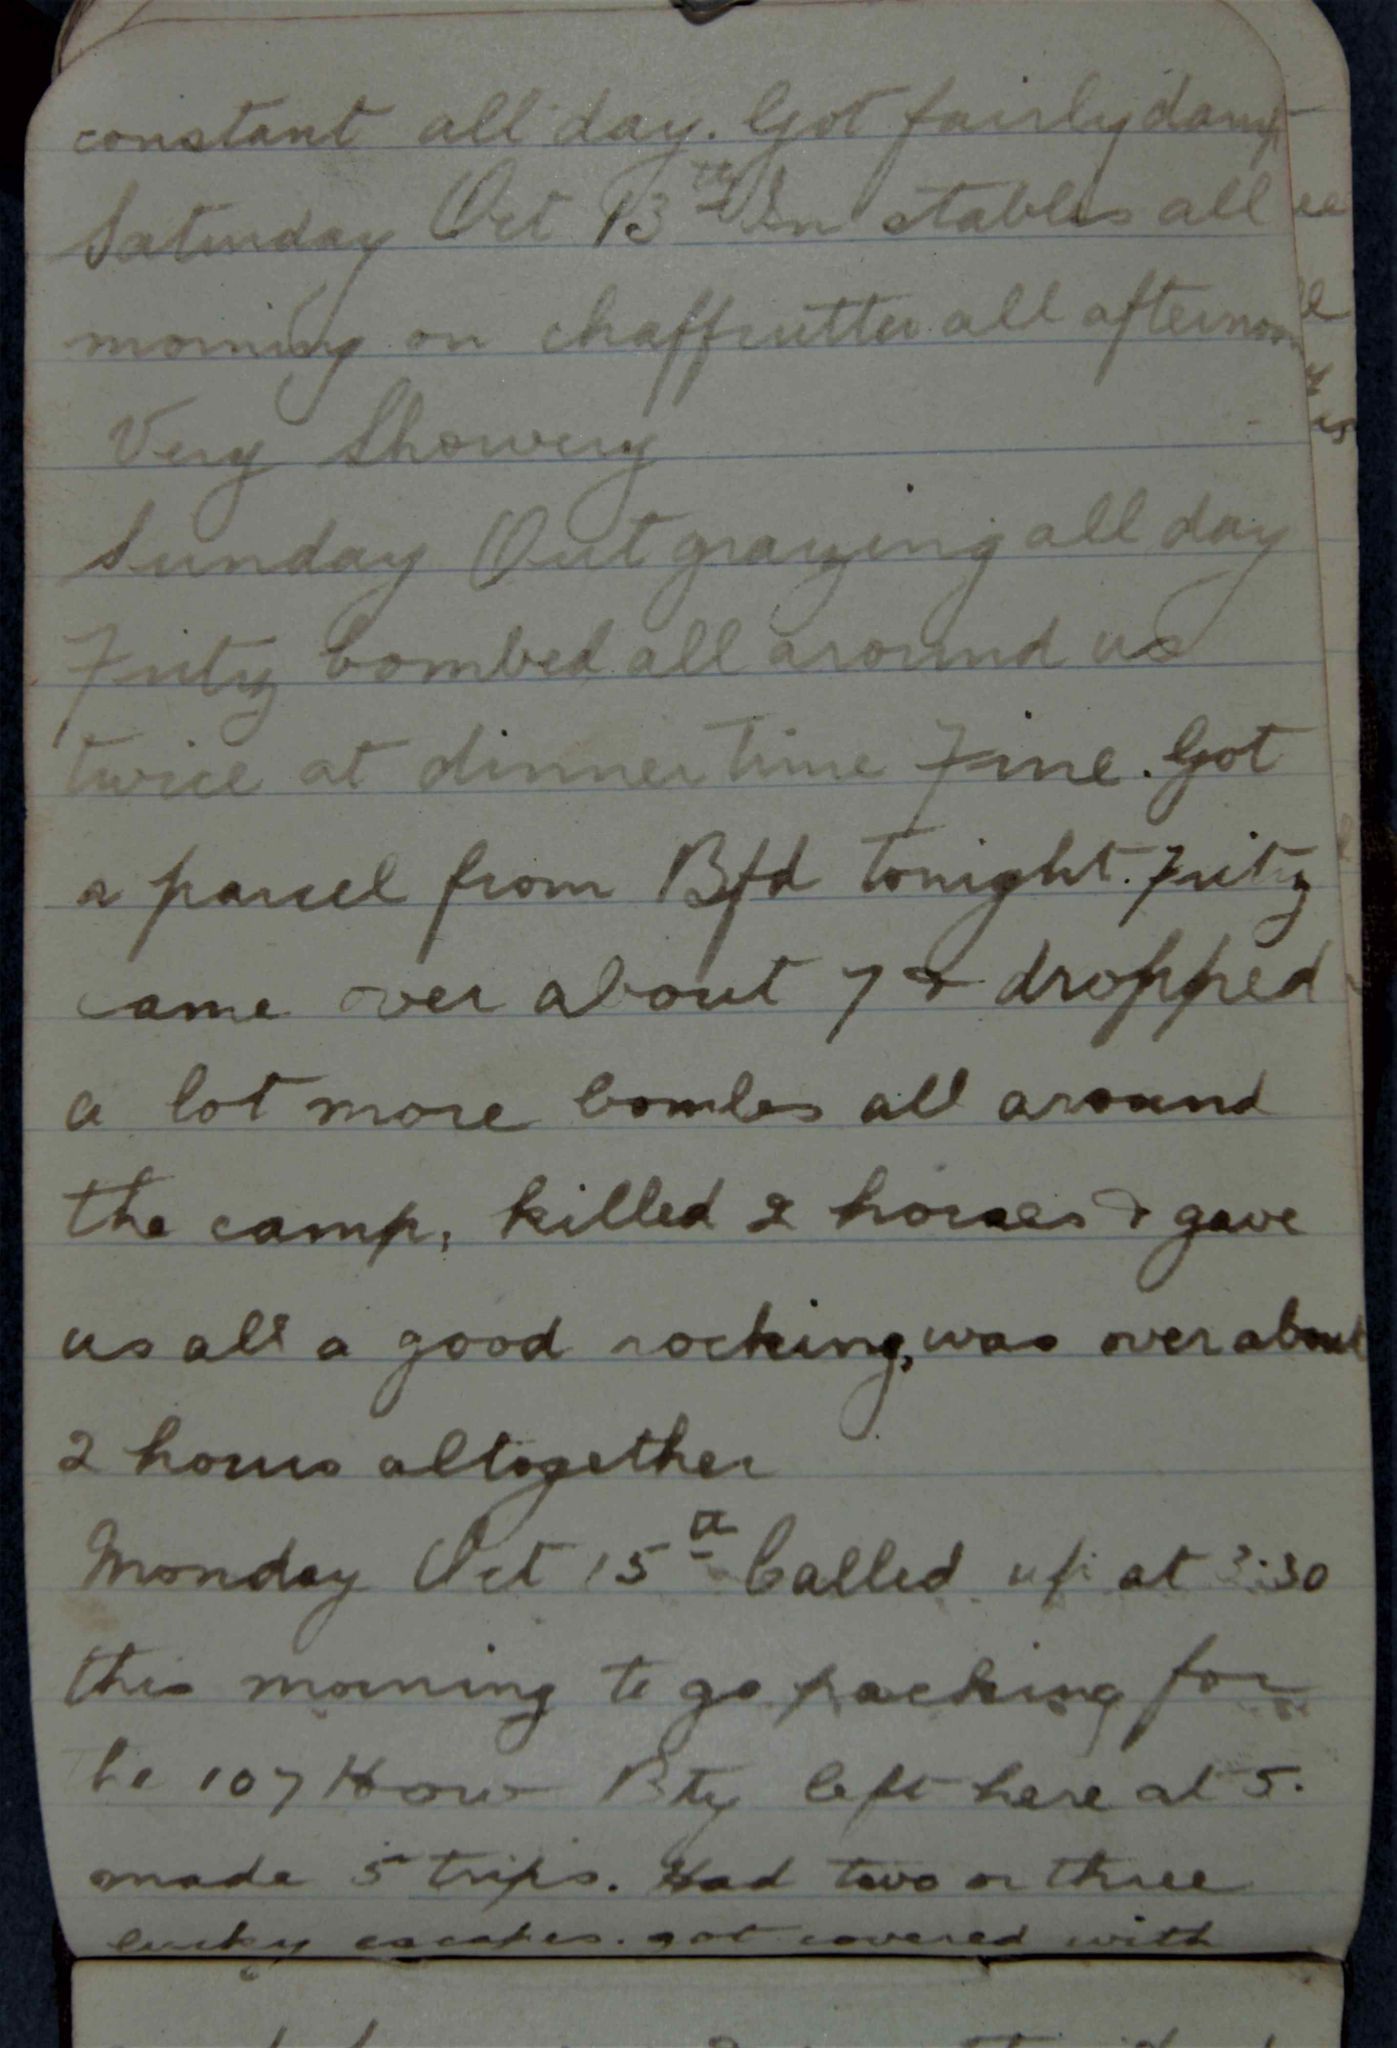 constant all day. Got fairly damp
Saturday Oct 13th In stables all
morning on chaffcutter all afternoon
Very Showery
Sunday Out grazing all day
Fritz bombed all around us
twice at dinner time Fine. Got
a parcel from Bfd tonight. Fritz
came over about 7 & dropped
a lot more bombs all around
the camp, killed 2 horses & gave
us all a good rocking, was over about
2 hours altogether
Monday Oct 15th Called up at 3:30
this morning to go packing for
the 107 How Bty left here at 5.
made 5 trips. Had two or three
lucky escapes. got covered with